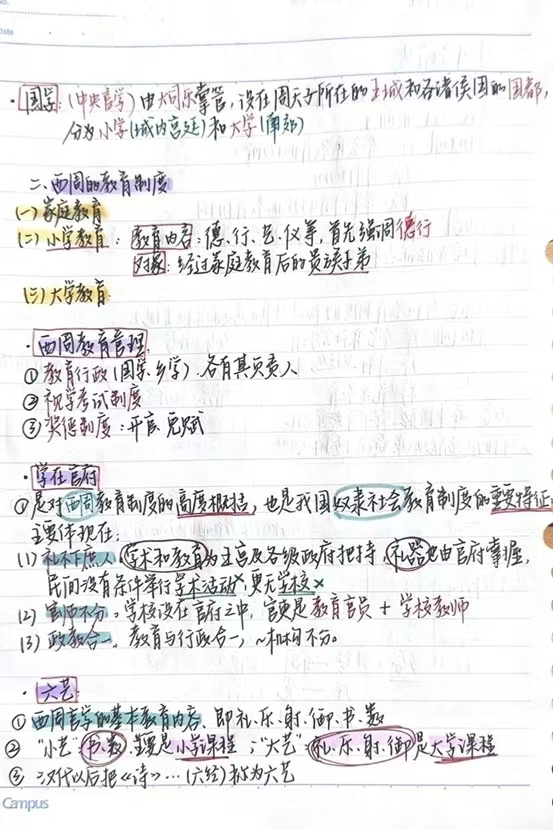 Date
·国学:(中央官学)由大司乐掌管,设在周天子所在的王城和各诸侯国的国都,
分为小学(城内宫廷)和大学(南郊)
二、西周的教育制度
(一)家庭教育
(二)小学教育:教育内容:德、行、艺、仪等,首先强调德行
对象:经过家庭教育后的贵族子弟
(三)大学教育:
·西周教育管理
①教育行政(国学、乡学):各有其负责人
②视学考试制度
③奖惩制度:开官、免赋
·学在官府
①是对西周教育制度的高度概括,也是我国奴隶社会教育制度的重要特征,
主要体现在:
(1)礼不下庶人,学术和教育为王宫及各级政府把持,礼器也由官府掌握,
民间没有条件举行学术活动×,更无学校×
(2)官师不分。学校设在官府之中,官吏是教育官员+学校教师
(3)政教合一。教育与行政合一,~机构不分。
·六艺
①西周官学的基本教育内容,即礼、乐、射、御、书、数
②“小艺”:书、数,主要是小学课程;“大艺”:礼、乐、射、御是大学课程
③汉代以后把《诗》…(六经)称为六艺
Campus